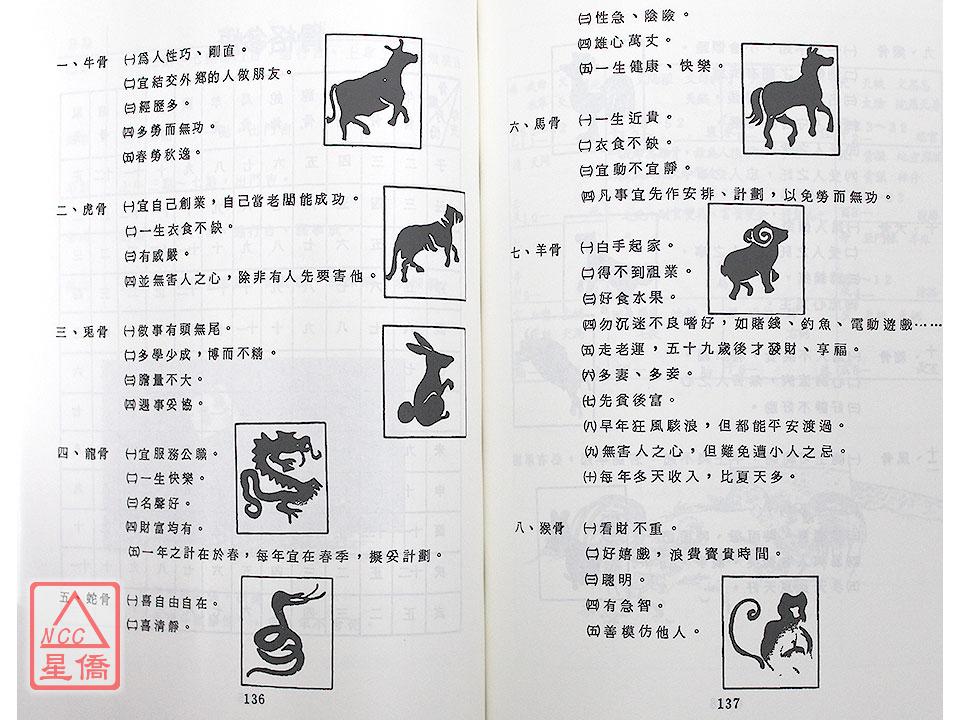 一、牛骨 ㈠爲人性巧、剛直。
㈡宜結交外鄉的人做朋友。
㈢經歷多。
㈣多勞而無功。
㈤春勞秋逸。
二、虎骨 ㈠宜自己創業，自己當老闆能成功。
㈡一生衣食不缺。
㈢有威嚴。
㈣並無害人之心，除非有人先要害他
三、兎骨 ㈠做事有頭無尾。
㈡多學少成，博而不精。
㈢膽量不大。
㈣遇事妥協。
四、龍骨 ㈠宜服務公職。
㈡一生快樂。
㈢名聲好。
㈣財富均有。
㈤一年之計在於春，每年宜在春季，擬妥計劃。
五、蛇骨 ㈠喜自由自在。
㈡喜清靜。
NCC
星僑
136
㈢性急、陰險。
㈣雄心萬丈。
㈤一生健康、快樂。
六、馬骨 ㈠一生近貴。
㈡衣食不缺。
㈢宜動不宜靜。
㈣凡事宜先作安排、計劃，以免勞而無功。
七、羊骨 ㈠白手起家。
㈡得不到祖業。
㈢好食水果。
㈣勿沉迷不良嗜好，如賭錢、釣魚、電動遊戲……
㈤走老運，五十九歲後才發財、享福。
㈥多妻、多妾。
㈦先貧後富。
㈧早年狂風駭浪，但都能平安渡過。
㈨無害人之心，但難免遭小人之忌。
㈩每年冬天收入，比夏天多。
八、猴骨 ㈠看財不重。
㈡好嬉戲，浪費寶貴時間。
㈢聰明。
㈣有急智。
㈤善模仿他人。
137